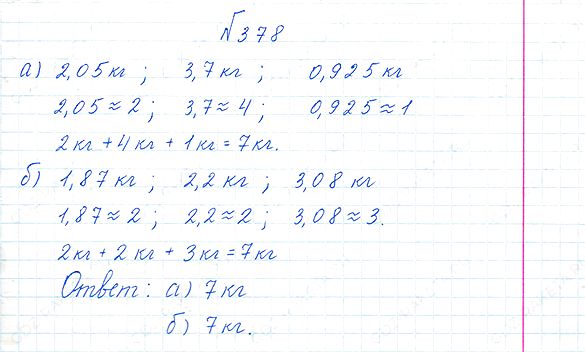 №378
а) 2,05 кг ; 3,7 кг ; 0,925 кг
2,05 ≈ 2 ; 3,7 ≈ 4 ; 0,925 ≈ 1
2 кг + 4 кг + 1 кг = 7 кг.
б) 1,87 кг ; 2,2 кг ; 3,08 кг
1,87 ≈ 2 ; 2,2 ≈ 2 ; 3,08 ≈ 3.
2 кг + 2 кг + 3 кг = 7 кг
Ответ: а) 7 кг
б) 7 кг.